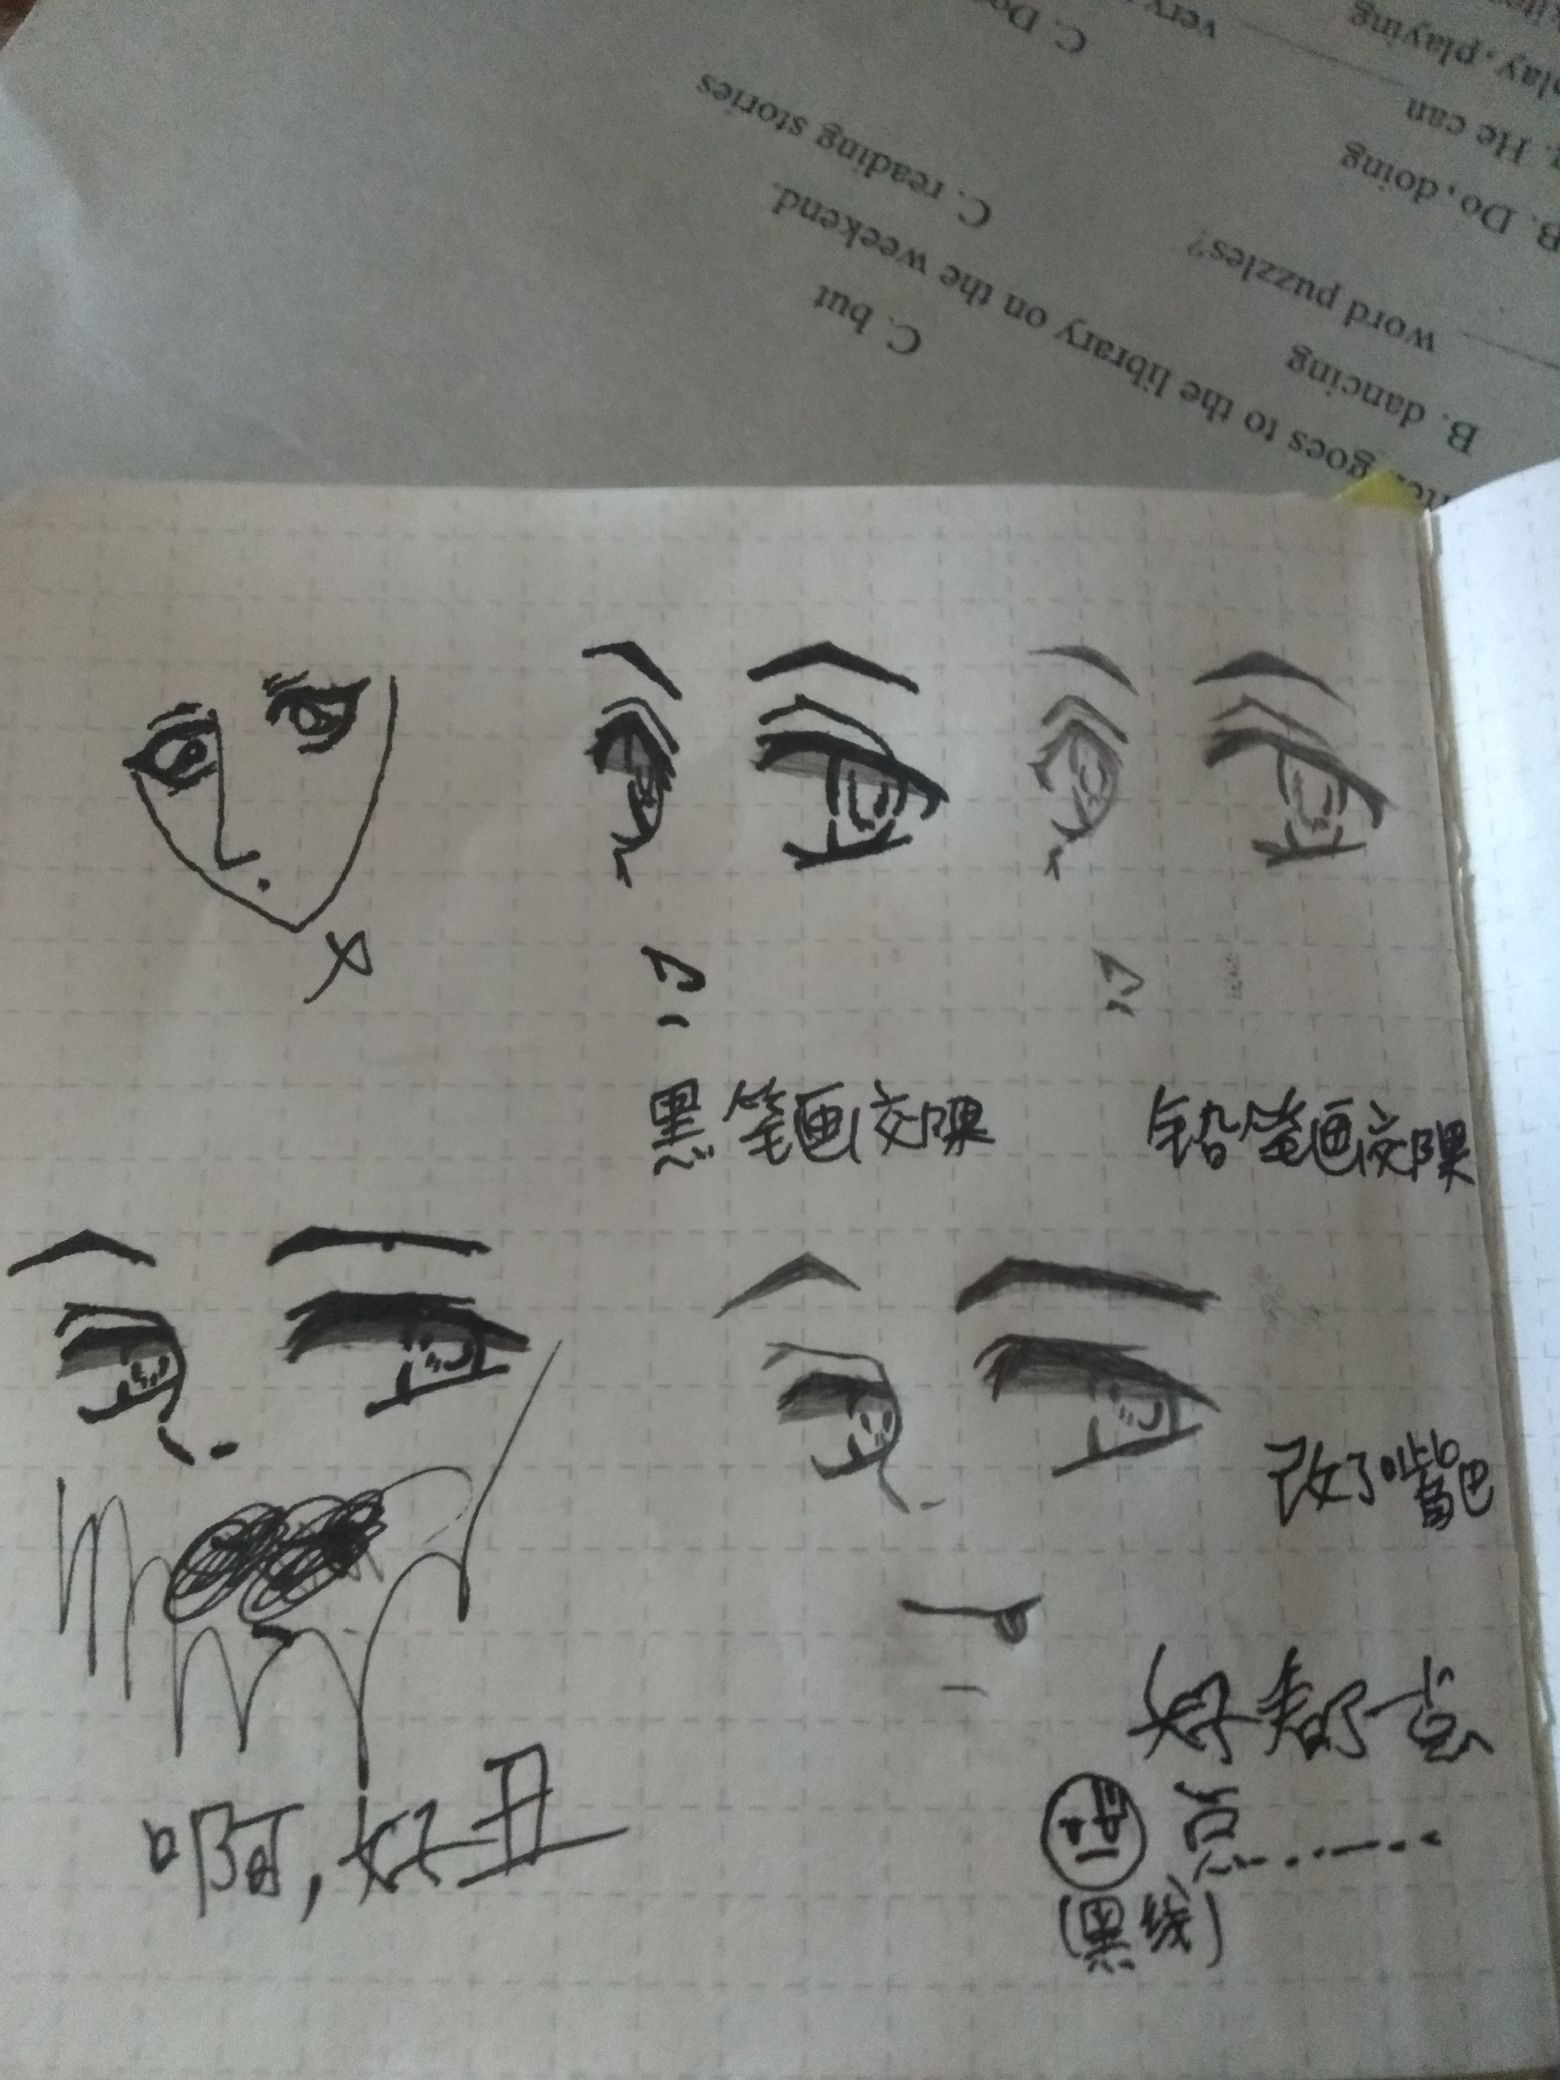 C. but
goes to the library on the weekend.
B. dancing C. reading stories
____ word puzzles?
B. Do, doing C. Do
He can ____ very
play, playing
黑笔画效果
铅笔画效果
改了嘴巴
好看了一点
点......
(黑线)
啊,好丑